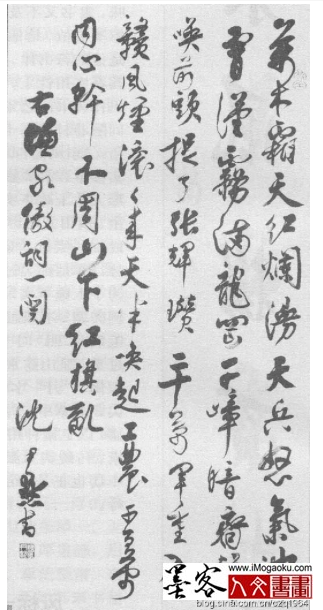 萬木霜天紅爛漫天兵怒氣沖
霄漢霧滿龍岡千嶂暗齊聲
喚前頭捉了張輝瓚二十萬軍重入
贛風煙滾〻來天半喚起工農千百萬
同心幹不周山下紅旗亂
右漁家傲詞一闋
沈尹默書
www.iMogaoku.com
墨客
blog.sina.com.cn/czq1964